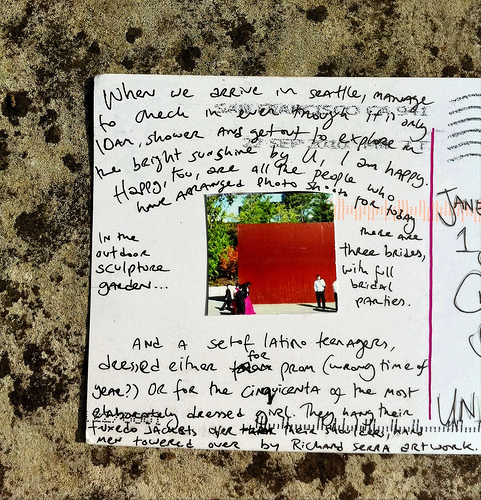 When we arrive in Seattle, manage
to check in even though it is only
10am, shower and get out to explore in
the bright sunshine by U, I am happy.
Happy, too, are all the people who
have arranged photo shoots for today
there are
three brides,
with full
bridal
parties.
In the
outdoor
sculpture
garden...
And a set of latino teenagers,
dressed either for prom (wrong time of
year?) or for the Cinquicenta of the most
elaborately dressed girl. They hang their
tuxedo jackets over their shoulders,
men towered over by Richard Serra artwork.
JANE
1
UN